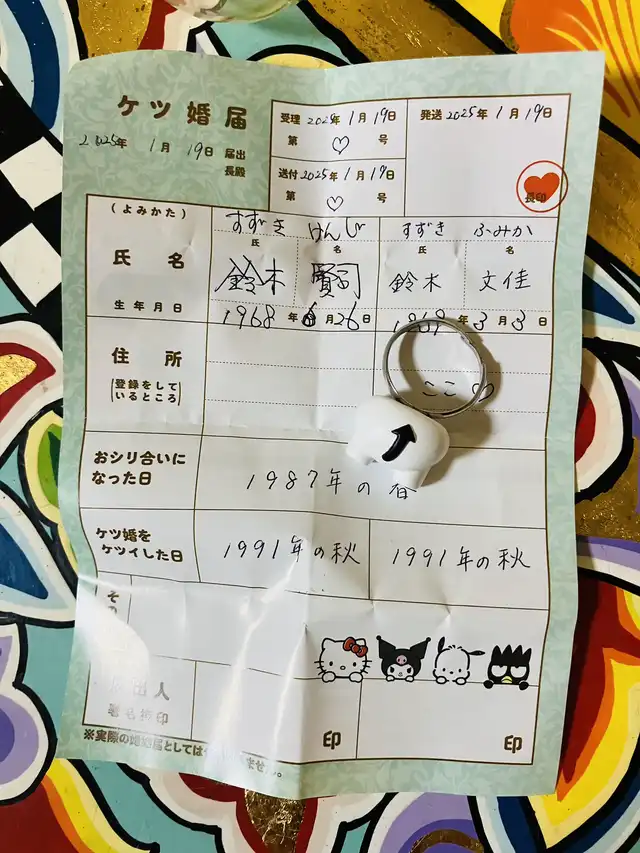 ケツ婚届
2025年 1月 19日 届出
長殿
受理 2025年 1月 19日
第 ♡ 号
送付 2025年 1月 19日
第 ♡ 号
発送 2025年 1月 19日
長印
(よみかた)
すずき けんじ すずき ふみか
氏 名 氏 名
氏名
鈴木 賢司 鈴木 文佳
生年月日
1968年 月26日 年3月3日
住所
[登録をして
いるところ]
ここ
おシリ合いに
なった日
1987年の春
ケツ婚を
ケツイした日
1991年の秋 1991年の秋
そ
出人
署名押印
印 印
※実際の婚姻届としては
ません。